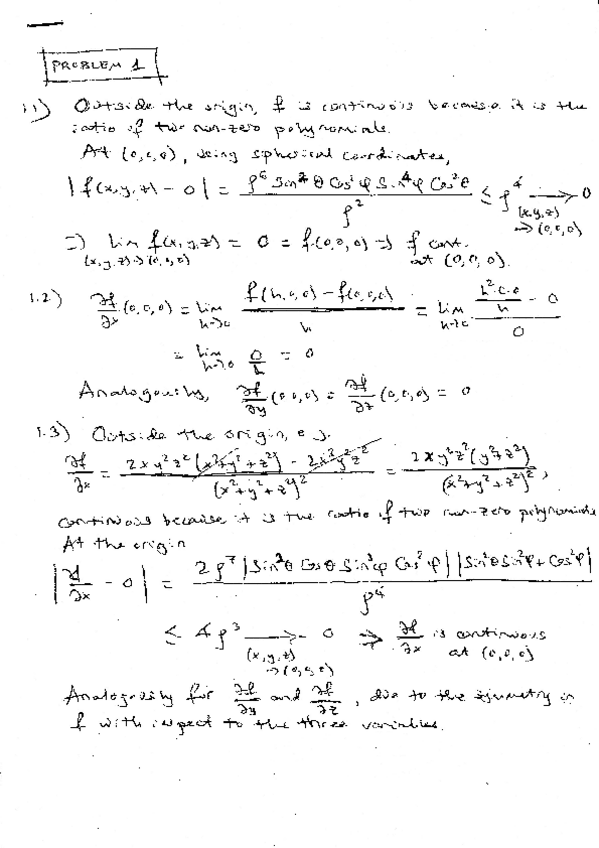 PROBLEM 1
1.1) Outside the origin, f is continuous because it is the
ratio of two non-zero polynomials.
At (0,0,0), using spherical coordinates,
|f(x,y,z) - 0| = ρ^6 Sin^2 θ Cos^2 φ Sin^4 φ Cos^2 θ / ρ^2 ≤ ρ^4 → 0
(x,y,z) → (0,0,0)
=> lim f(x,y,z) = 0 = f(0,0,0) => f cont.
(x,y,z)→(0,0,0) at (0,0,0).
1.2) ∂f/∂x (0,0,0) = lim h→0 (f(h,0,0) - f(0,0,0)) / h = lim h→0 (h^2·0·0 / h - 0) / 0
= lim h→0 0/h = 0
Analogously, ∂f/∂y (0,0,0) = ∂f/∂z (0,0,0) = 0
1.3) Outside the origin, e.g.
∂f/∂x = (2xy^2z^2 (x^2+y^2+z^2) - 2x^2y^2z^2) / (x^2+y^2+z^2)^2 = 2xy^2z^2 (y^2+z^2) / (x^2+y^2+z^2)^2,
continuous because it is the ratio of two non-zero polynomials
At the origin
|∂f/∂x - 0| = 2ρ^7 |Sin^3 θ Cos θ Sin^3 φ Cos^2 φ| |Sin^2 θ Sin^2 φ + Cos^2 φ| / ρ^4
≤ 4ρ^3 → 0 => ∂f/∂x is continuous
(x,y,z) → (0,0,0) at (0,0,0)
Analogously for ∂f/∂y and ∂f/∂z, due to the symmetry in
f with respect to the three variables.